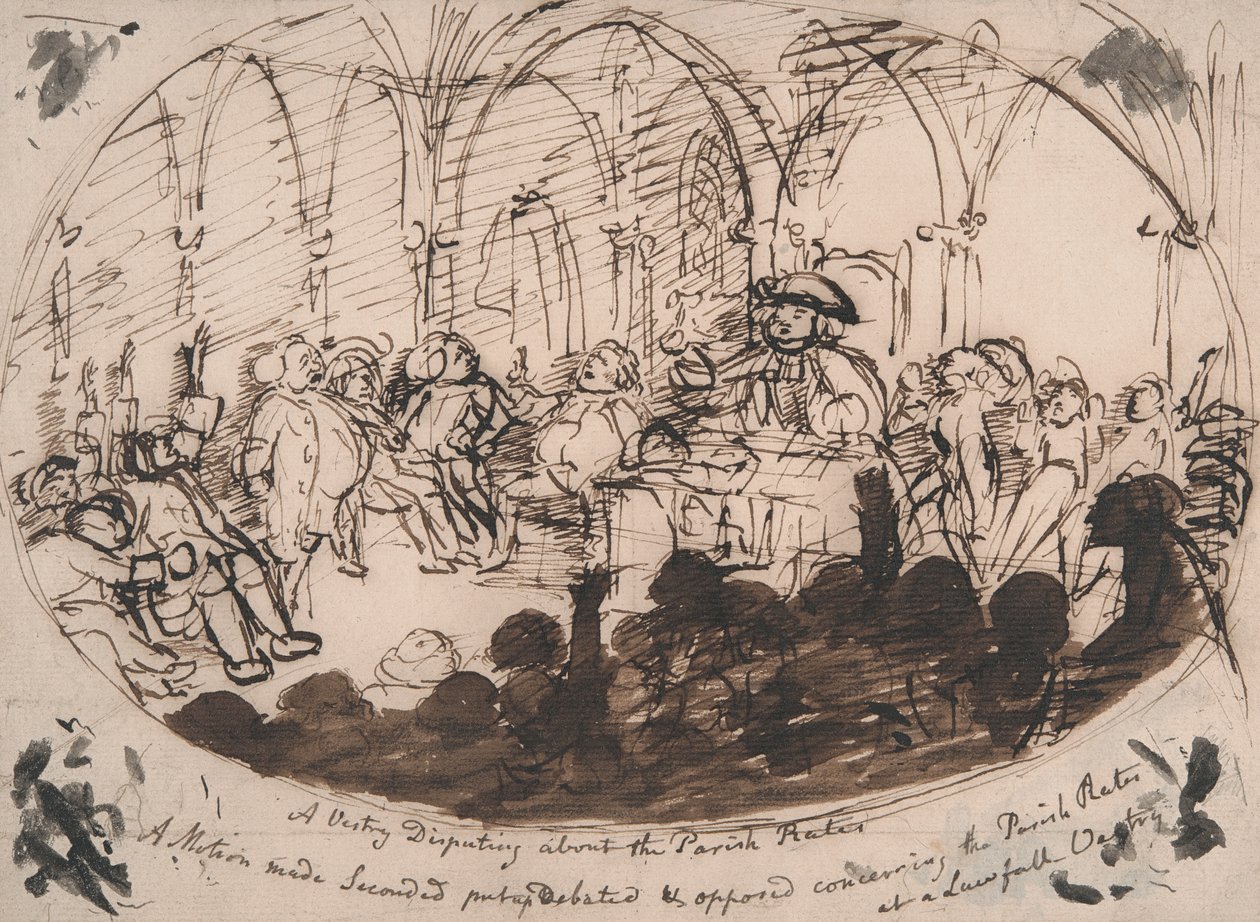 A Vestry Disputing about the Parish Rates
A Motion made Seconded put up Debated & opposed concerning the Parish Rates
at a Lawfull Vestry